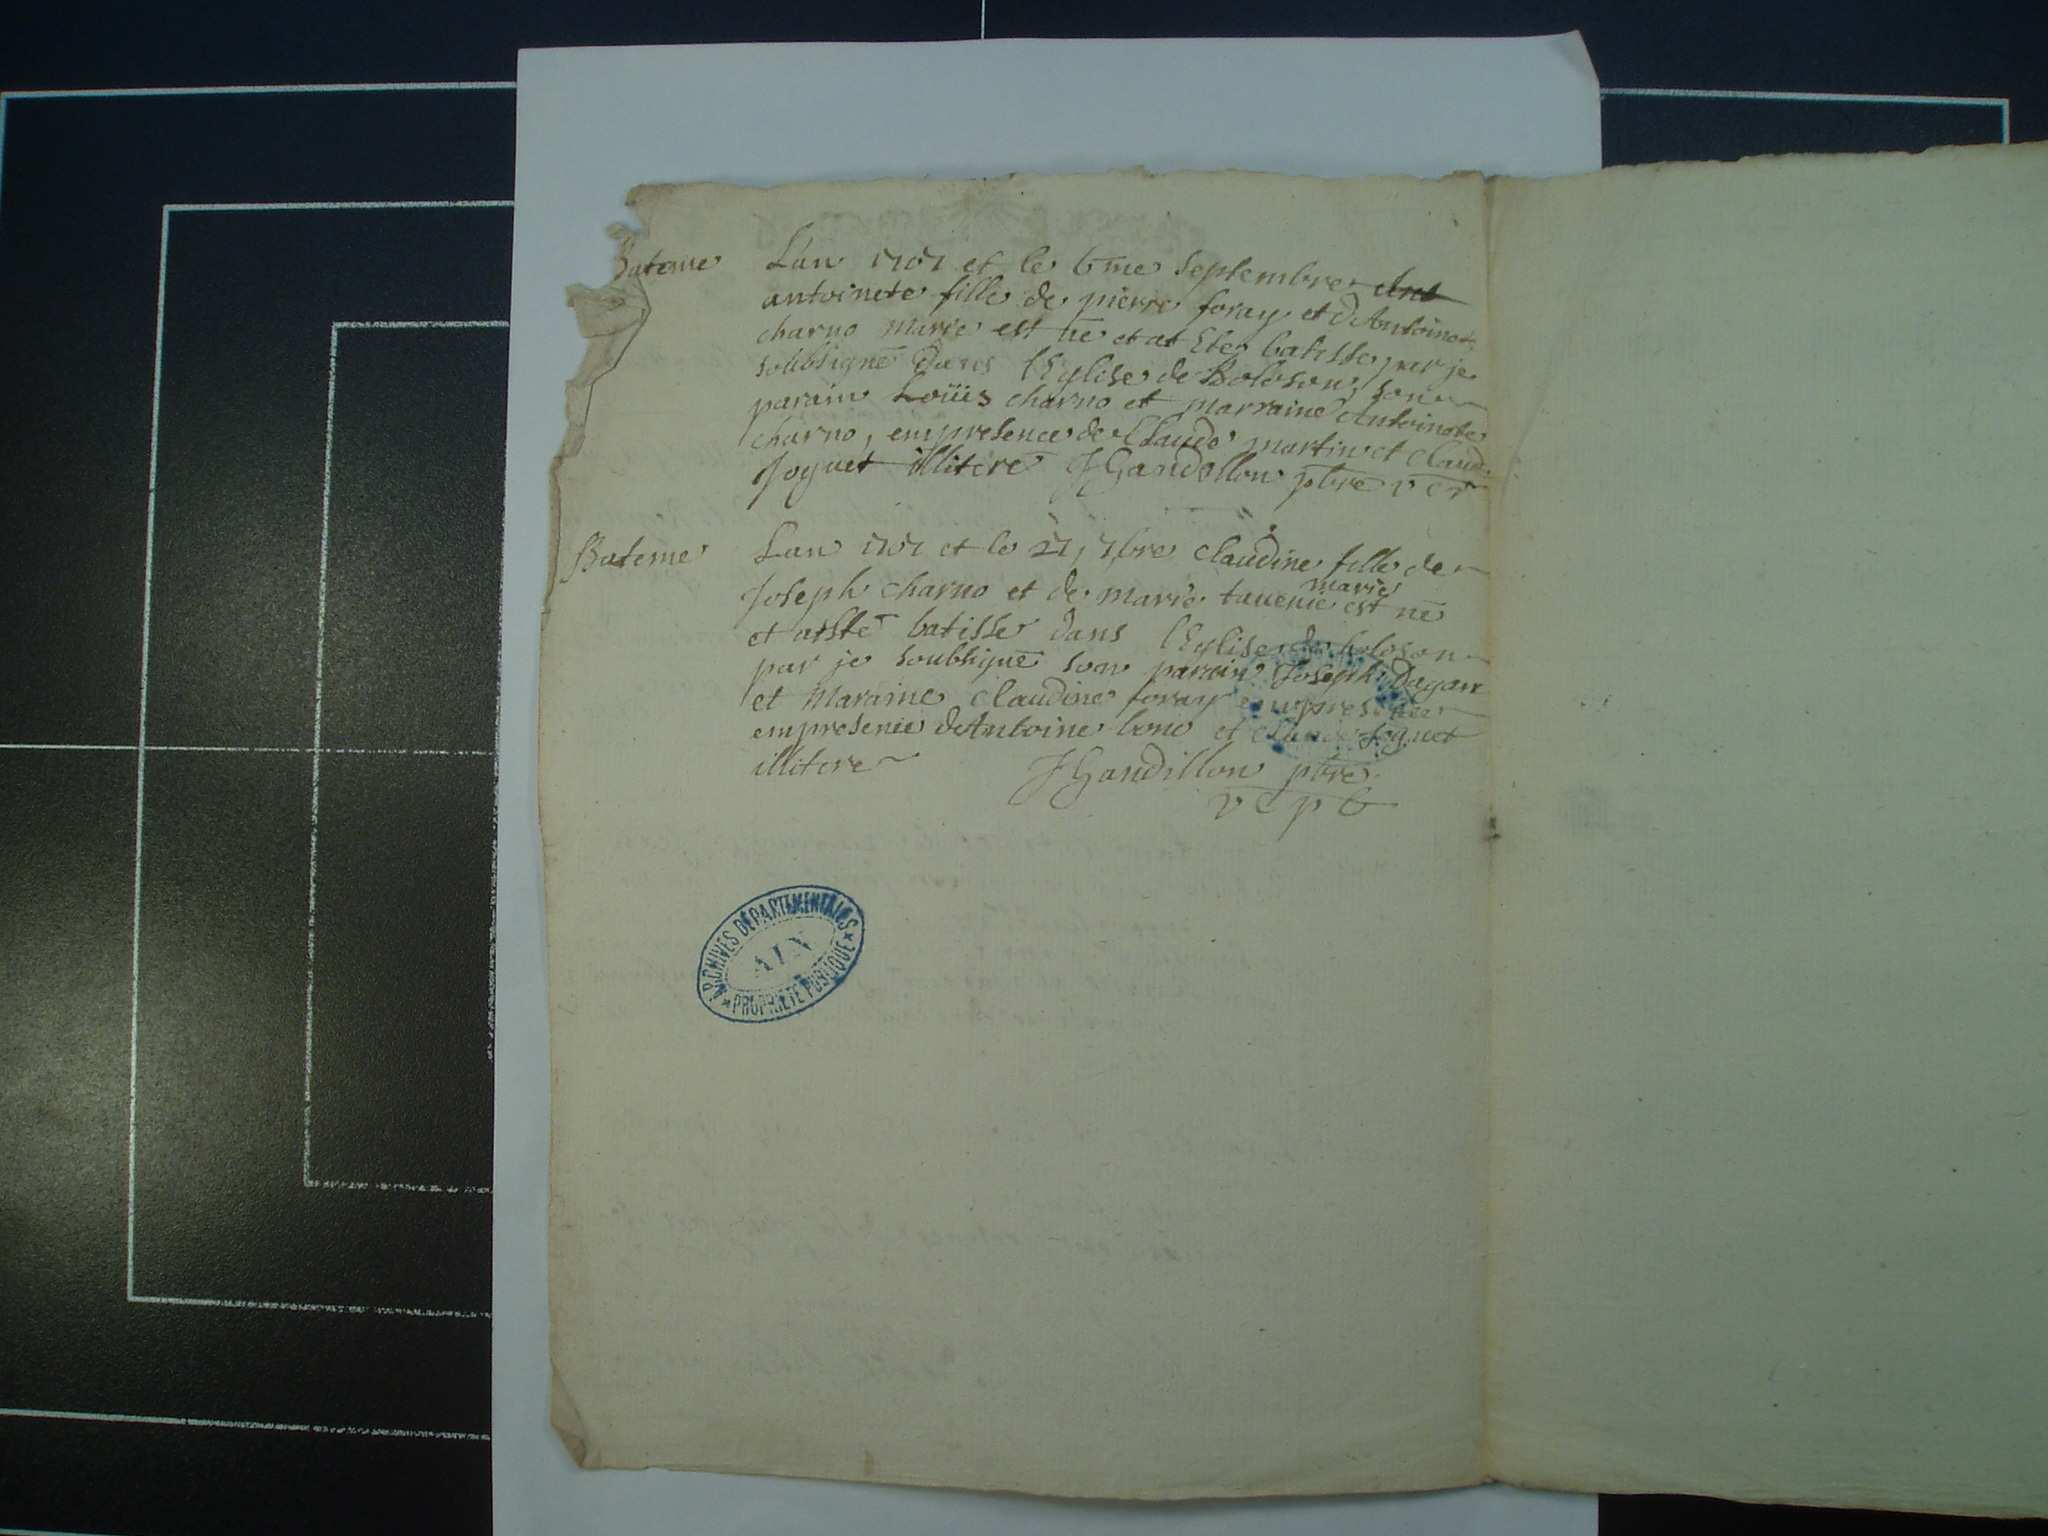 Bateme
L'an 1707 et le 6me septembre
antoinete fille de pierre foray et d'Antoinete
charno marie est né et at Eté batisse par je
soubsigné dans l'Eglise de Boloson, son
parain Loüis charno et marraine Antoinete
charno, empresence de Claude martin et Claude
Joguet illiteré J Gandillon pbre
Bateme
Lan 1707 et le 27, 7bre Claudine fille de
marie
Joseph Charno et de marie tavenié est né
et at Eté batisse dans l'Eglise de boloson
par je soubsigné son parain Joseph
et Maraine Claudine foray empresence
empresence d'Antoine bone et Claude Joguet
illitere J Gandillon pbre
v c p b
ARCHIVES DÉPARTEMENTALES
AIN
PROPRIÉTÉ PUBLIQUE